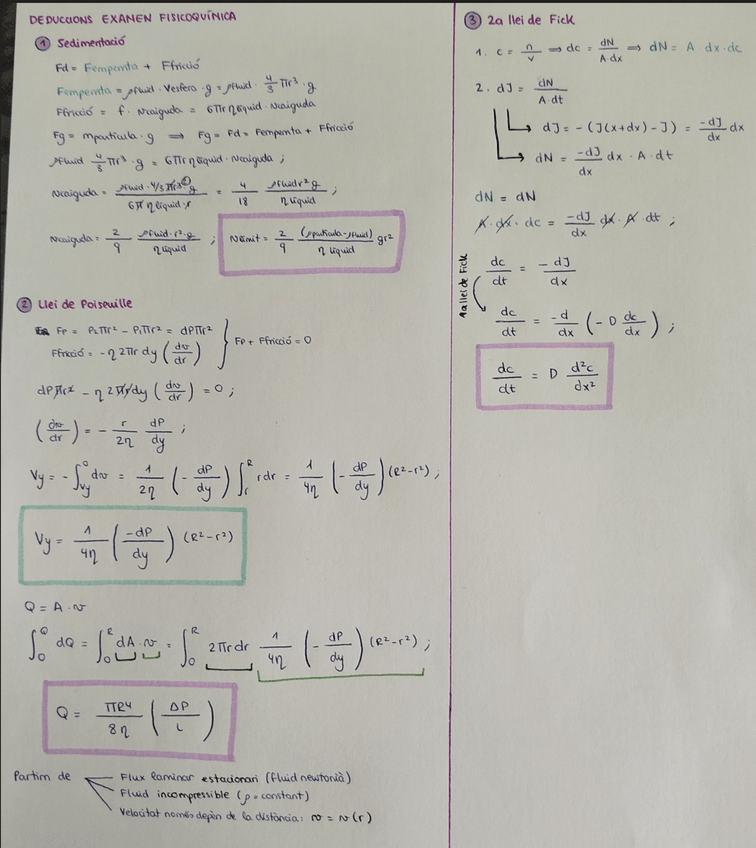 DEDUCCIONS EXAMEN FISICOQUÍMICA
① Sedimentació
Fd = Fempemta + Ffricció
Fempemta = ρfluid · Vesfera · g = ρfluid · 4/3 πr³ · g
Ffricció = f · vcaiguda = 6πr ηlíquid · vcaiguda
Fg = mpartícula · g ⟹ Fg = Fd = Fempemta + Ffricció
ρfluid 4/3 πr³ · g = 6πr ηlíquid · vcaiguda ;
vcaiguda = ρfluid · 4/3 πr³ g / 6π ηlíquid · r = 4/18 ρfluid r² g / ηlíquid ;
vcaiguda = 2/9 ρfluid · r² · g / ηlíquid ; vlímit = 2/9 (ρpartícula - ρfluid) / ηlíquid gr²
② Llei de Poiseuille
Fp = P₂πr² - P₁πr² = dPπr²
Ffricció = -η 2πr dy (dv/dr)
} Fp + Ffricció = 0
dPπr² - η 2πr dy (dv/dr) = 0 ;
(dv/dr) = - r/2η dP/dy ;
Vy = - ∫Vy^0 dv = 1/2η (- dP/dy) ∫r^R r dr = 1/4η (- dP/dy) (R² - r²) ;
Vy = 1/4η (-dP/dy) (R² - r²)
Q = A · v
∫0^Q dQ = ∫0^R dA · v = ∫0^R 2πr dr 1/4η (- dP/dy) (R² - r²) ;
Q = πR⁴/8η (ΔP/L)
Partim de
Flux laminar estacionari (fluid newtonià)
Fluid incompressible (ρ = constant)
Velocitat només depèn de la distància: v = v(r)
③ 2a llei de Fick
1. c = n/v ⟹ dc = dN/A·dx ⟹ dN = A dx · dc
2. dJ = dN/A·dt
dJ = - (J(x+dx) - J) = -dJ/dx dx
dN = -dJ/dx dx · A · dt
dN = dN
A · dx · dc = -dJ/dx dx · A · dt ;
dc/dt = - dJ/dx
1a llei de Fick
dc/dt = -d/dx (- D dc/dx) ;
dc/dt = D d²c/dx²